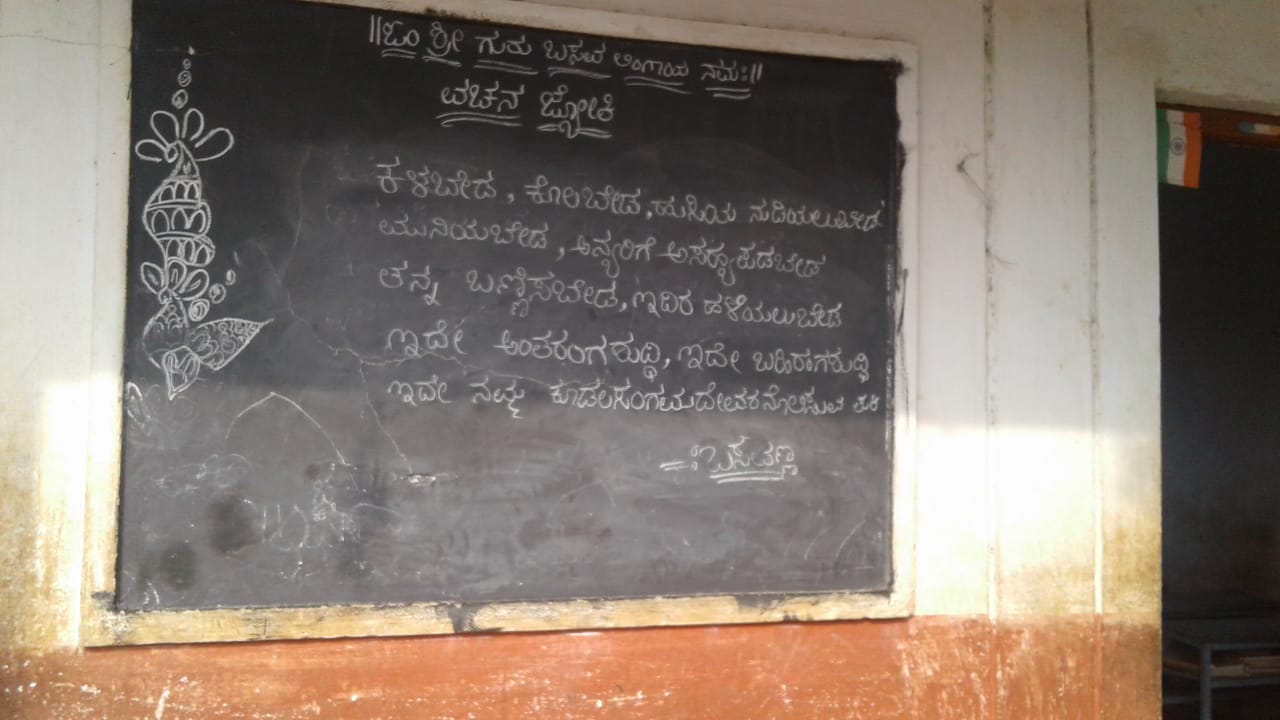 ||ಓಂ ಶ್ರೀ ಗುರು ಬಸವ ಲಿಂಗಾಯ ನಮಃ||
ವಚನ ಜ್ಯೋತಿ
ಕಳಬೇಡ, ಕೊಲಬೇಡ, ಹುಸಿಯ ನುಡಿಯಲುಬೇಡ
ಮುನಿಯಬೇಡ, ಅನ್ಯರಿಗೆ ಅಸಹ್ಯಪಡಬೇಡ
ತನ್ನ ಬಣ್ಣಿಸಬೇಡ, ಇದಿರ ಹಳಿಯಲುಬೇಡ
ಇದೇ ಅಂತರಂಗಶುದ್ಧಿ, ಇದೇ ಬಹಿರಂಗಶುದ್ಧಿ
ಇದೇ ನಮ್ಮ ಕೂಡಲಸಂಗಮದೇವರನೊಲಿಸುವ ಪರಿ
-:ಬಸವಣ್ಣ